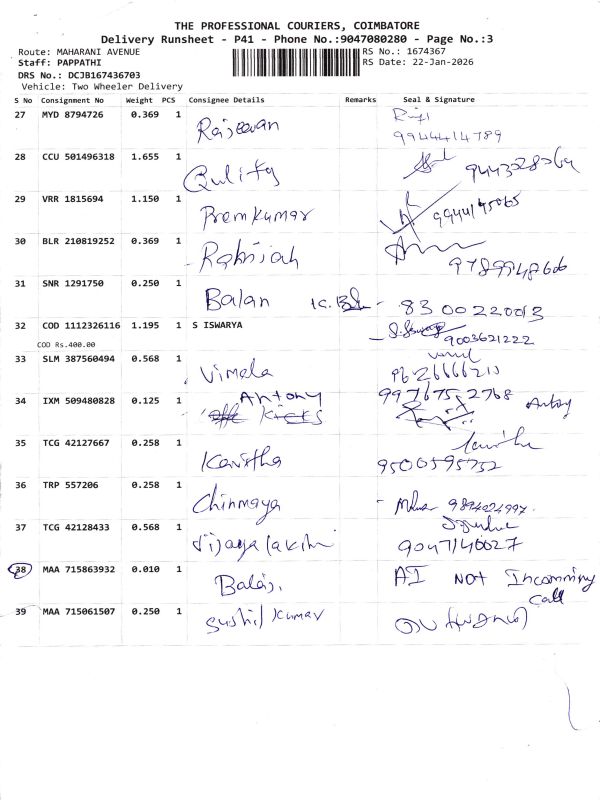 THE PROFESSIONAL COURIERS, COIMBATORE
Delivery Runsheet - P41 - Phone No.:9047080280 - Page No.:3
Route: MAHARANI AVENUE
RS No.: 1674367
Staff: PAPPATHI
RS Date: 22-Jan-2026
DRS No.: DCJB167436703
Vehicle: Two Wheeler Delivery
S No Consignment No Weight PCS Consignee Details Remarks Seal & Signature
27 MYD 8794726 0.369 1 Rajeevan
9944414789
28 CCU 501496318 1.655 1 Qulity
29 VRR 1815694 1.150 1 Premkumar
30 BLR 210819252 0.369 1
9789948606
31 SNR 1291750 0.250 1 Balan
8300220013
32 COD 1112326116 1.195 1 S ISWARYA
9003621222
COD Rs.400.00
33 SLM 387560494 0.568 1 Vimala
9626666213
34 IXM 509480828 0.125 1 Antony 9976752768 Antony
35 TCG 42127667 0.258 1 Kavitha
9500595752
36 TRP 557206 0.258 1 Chinmaya
37 TCG 42128433 0.568 1
9047140027
38 MAA 715863932 0.010 1 Balaji AI NOT Incomming
Call
39 MAA 715061507 0.250 1 Sushil Kumar